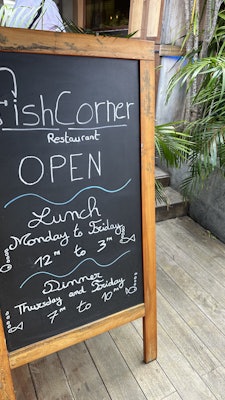 FishCorner
Restaurant
OPEN
Lunch
Monday to Friday
12ᴾᴹ to 3ᴾᴹ
Dinner
Thursday and Friday
7ᴾᴹ to 10ᴾᴹ